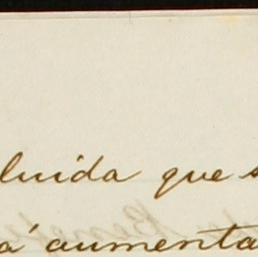 luida que s
a' aumenta